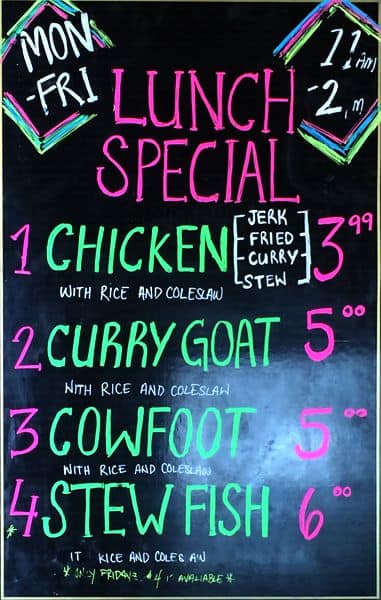 MON
-FRI
11 AM
-2 P.M
LUNCH
SPECIAL
1 CHICKEN JERK FRIED CURRY STEW 3.99
WITH RICE AND COLESLAW
2 CURRY GOAT 5.00
WITH RICE AND COLESLAW
3 COWFOOT 5.00
WITH RICE AND COLESLAW
*4 STEW FISH 6.00
IT RICE AND COLES AW
* ONLY FRIDAYS #4 IS AVALIABLE *